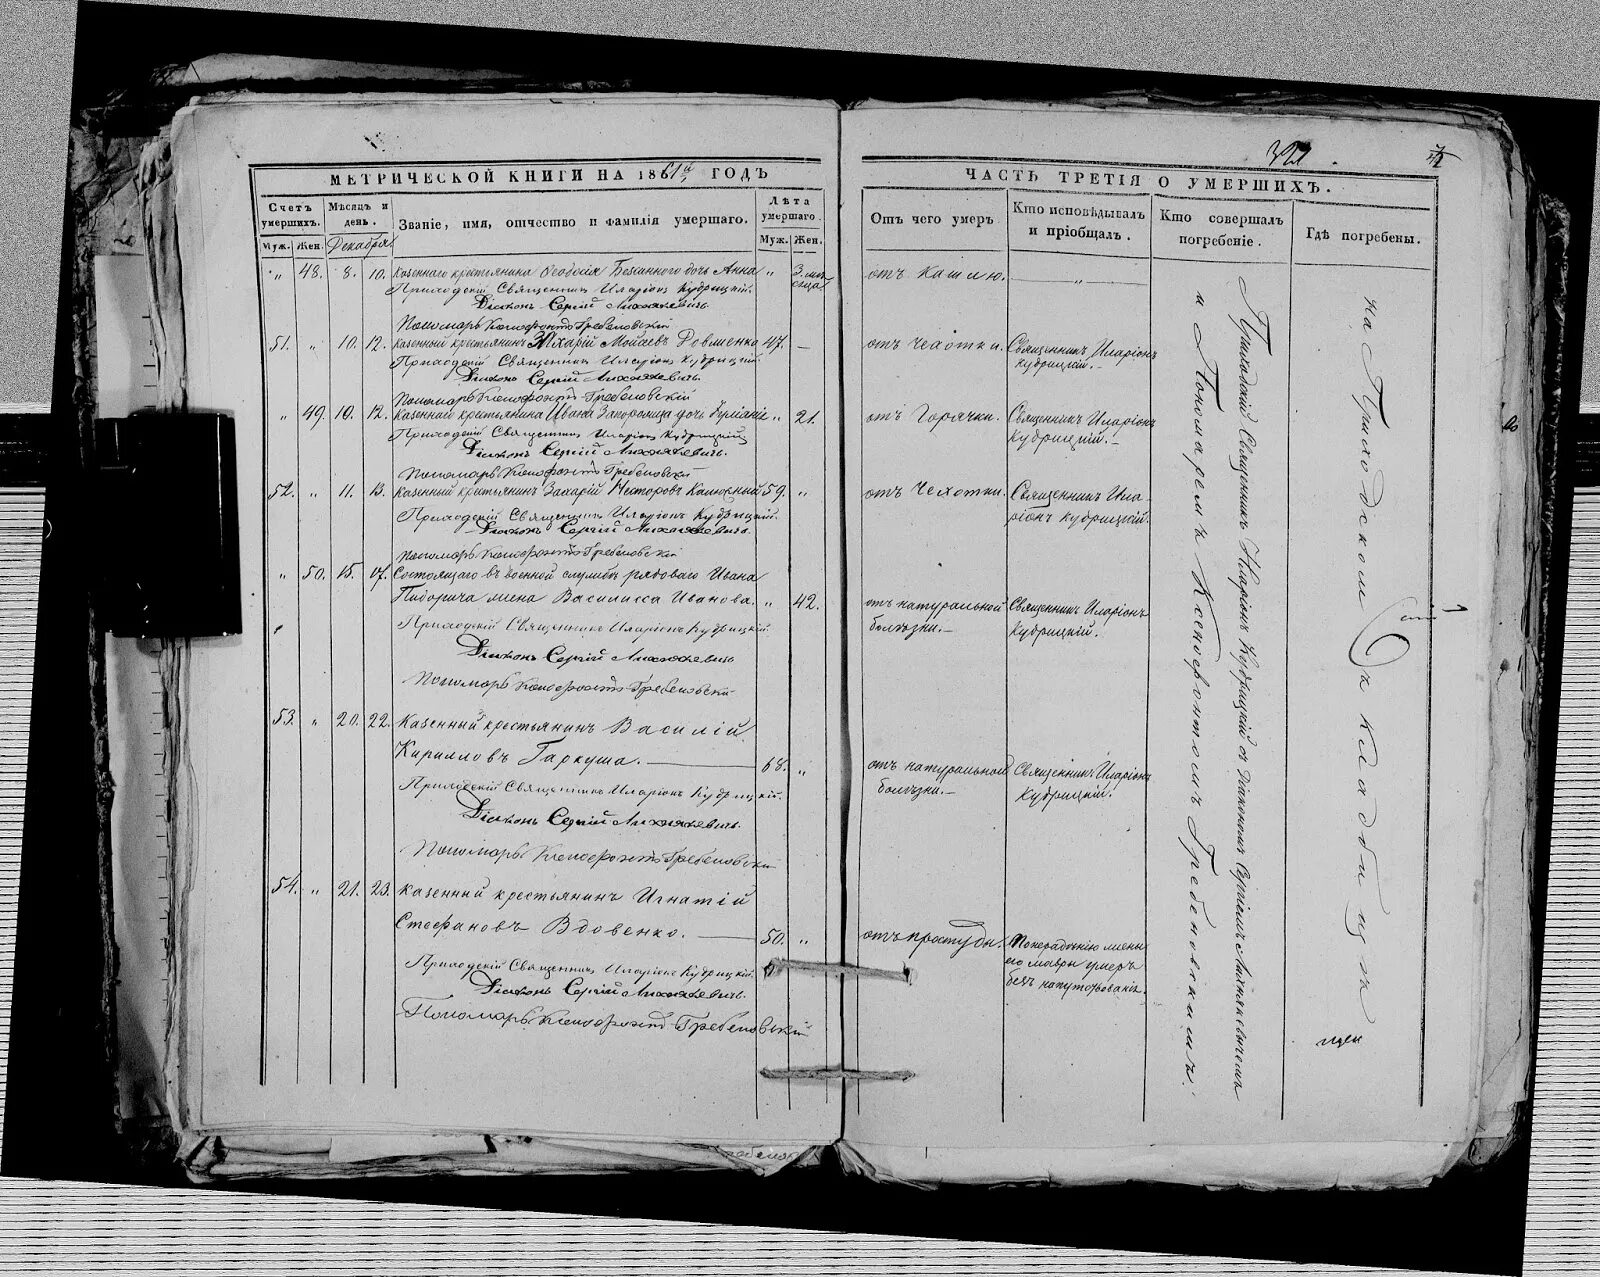 МЕТРИЧЕСКОЙ КНИГИ НА 1861й ГОДЪ
Счетъ умершихъ.
Мѣсяцъ и день.
Званіе, имя, отчество и фамилія умершаго.
Лѣта умершаго.
Муж. Жен. Декабря Муж. Жен.
„ 48. 8. 10. Казеннаго крестьянина Ѳеодосія дочь Анна „ 3. мѣсяца
Приходскій Священникъ Иларіонъ Кудрицкій.
Діаконъ Сергій Лихнякевичъ.
Пономарь Ксенофонтъ Гребеновскій
51. „ 10. 12. Казенный крестьянинъ Захарій Моисеевъ Довженко 47. —
Приходскій Священникъ Иларіонъ Кудрицкій.
Діаконъ Сергій Лихнякевичъ.
Пономарь Ксенофонтъ Гребеновскій
„ 49. 10. 12. Казеннаго крестьянина Ивана Запорожца дочь „ 21.
Приходскій Священникъ Иларіонъ Кудрицкій
Діаконъ Сергій Лихнякевичъ.
Пономарь Ксенофонтъ Гребеновскій
52. „ 11. 13. Казенный крестьянинъ Захарій Несторовъ 59. „
Приходскій Священникъ Иларіонъ Кудрицкій.
Діаконъ Сергій Лихнякевичъ.
Пономарь Ксенофонтъ Гребеновскій
„ 50. 15. 17. Состоящаго въ военной службѣ рядоваго Ивана
жена Василисса Иванова. „ 42.
Приходскій Священникъ Иларіонъ Кудрицкій.
Діаконъ Сергій Лихнякевичъ
Пономарь Ксенофонтъ Гребеновскій
53. „ 20. 22. Казенный крестьянинъ Василій
Кирилловъ Гаркуша. — 68. „
Приходскій Священникъ Иларіонъ Кудрицкій.
Діаконъ Сергій Лихнякевичъ.
Пономарь Ксенофонтъ Гребеновскій
54. „ 21. 23. Казенный крестьянинъ Игнатій
Стефановъ Вдовенко. — 50. „
Приходскій Священникъ Иларіонъ Кудрицкій.
Діаконъ Сергій Лихнякевичъ.
Пономарь Ксенофонтъ Гребеновскій
321.
ЧАСТЬ ТРЕТІЯ О УМЕРШИХЪ.
Отъ чего умеръ
Кто исповѣдывалъ и пріобщалъ.
Кто совершалъ погребеніе.
Гдѣ погребены.
отъ кашлю. — „ —
отъ чехотки. Священникъ Иларіонъ
Кудрицкій.
отъ Горячки. Священникъ Иларіонъ
Кудрицкій.
отъ Чехотки. Священникъ Ила-
ріонъ Кудрицкій.
отъ натуральной Священникъ Иларіонъ
болѣзни. Кудрицкій.
отъ натуральной Священникъ Иларіонъ
болѣзни. Кудрицкій.
отъ простуды. жены
его Мавры умеръ
безъ напутствованія.
Приходскій Священникъ Иларіонъ Кудрицкій съ Діакономъ Сергіемъ Лихнякевичемъ
и Пономаремъ Ксенофонтомъ Гребеновскимъ.
на Приходскомъ кладбищѣ